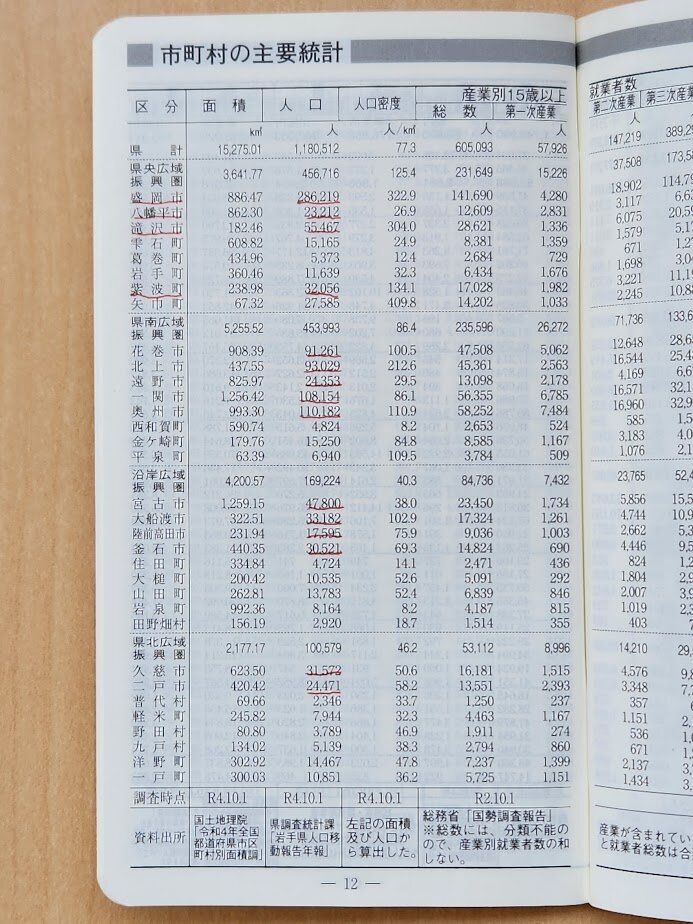 市町村の主要統計
区分 面積 人口 人口密度 産業別15歳以上就業者数
総数 第一次産業 第二次産業 第三次産業
k㎡ 人 人/k㎡ 人 人 人 人
県計 15,275.01 1,180,512 77.3 605,093 57,926 147,219
県央広域振興圏 3,641.77 456,716 125.4 231,649 15,226 37,508
盛岡市 886.47 286,219 322.9 141,690 4,280 18,902
八幡平市 862.30 23,212 26.9 12,609 2,831 3,117
滝沢市 182.46 55,467 304.0 28,621 1,336 6,075
雫石町 608.82 15,165 24.9 8,381 1,359 1,579
葛巻町 434.96 5,373 12.4 2,684 729 671
岩手町 360.46 11,639 32.3 6,434 1,676 1,698
紫波町 238.98 32,056 134.1 17,028 1,982 3,221
矢巾町 67.32 27,585 409.8 14,202 1,033 2,245
県南広域振興圏 5,255.52 453,993 86.4 235,596 26,272 71,736
花巻市 908.39 91,261 100.5 47,508 5,062 12,648
北上市 437.55 93,029 212.6 45,361 2,563 16,544
遠野市 825.97 24,353 29.5 13,098 2,178 4,169
一関市 1,256.42 108,154 86.1 56,355 6,785 16,571
奥州市 993.30 110,182 110.9 58,252 7,484 16,960
西和賀町 590.74 4,824 8.2 2,653 524 585
金ケ崎町 179.76 15,250 84.8 8,585 1,167 3,183
平泉町 63.39 6,940 109.5 3,784 509 1,076
沿岸広域振興圏 4,200.57 169,224 40.3 84,736 7,432 23,765
宮古市 1,259.15 47,800 38.0 23,450 1,734 5,856
大船渡市 322.51 33,182 102.9 17,324 1,261 4,744
陸前高田市 231.94 17,595 75.9 9,036 1,003 2,662
釜石市 440.35 30,521 69.3 14,824 690 4,446
住田町 334.84 4,724 14.1 2,471 436 824
大槌町 200.42 10,535 52.6 5,091 292 1,804
山田町 262.81 13,783 52.4 6,839 846 2,007
岩泉町 992.36 8,164 8.2 4,187 815 1,019
田野畑村 156.19 2,920 18.7 1,514 355 403
県北広域振興圏 2,177.17 100,579 46.2 53,112 8,996 14,210
久慈市 623.50 31,572 50.6 16,181 1,515 4,576
二戸市 420.42 24,471 58.2 13,551 2,393 3,348
普代村 69.66 2,346 33.7 1,250 237 357
軽米町 245.82 7,944 32.3 4,463 1,167 1,151
野田村 80.80 3,789 46.9 1,911 274 536
九戸村 134.02 5,139 38.3 2,794 860 671
洋野町 302.92 14,467 47.8 7,237 1,399 2,137
一戸町 300.03 10,851 36.2 5,725 1,151 1,434
調査時点 R4.10.1 R4.10.1 R4.10.1 R2.10.1
資料出所
国土地理院
「令和4年全国
都道府県市区
町村別面積調」
県調査統計課
「岩手県人口移
動報告年報」
左記の面積
及び人口か
ら算出した。
総務省「国勢調査報告」
※総数には、分類不能の
ので、産業別就業者数の和
しない。
産業が含まれてい
と就業者総数は合
― 12 ―